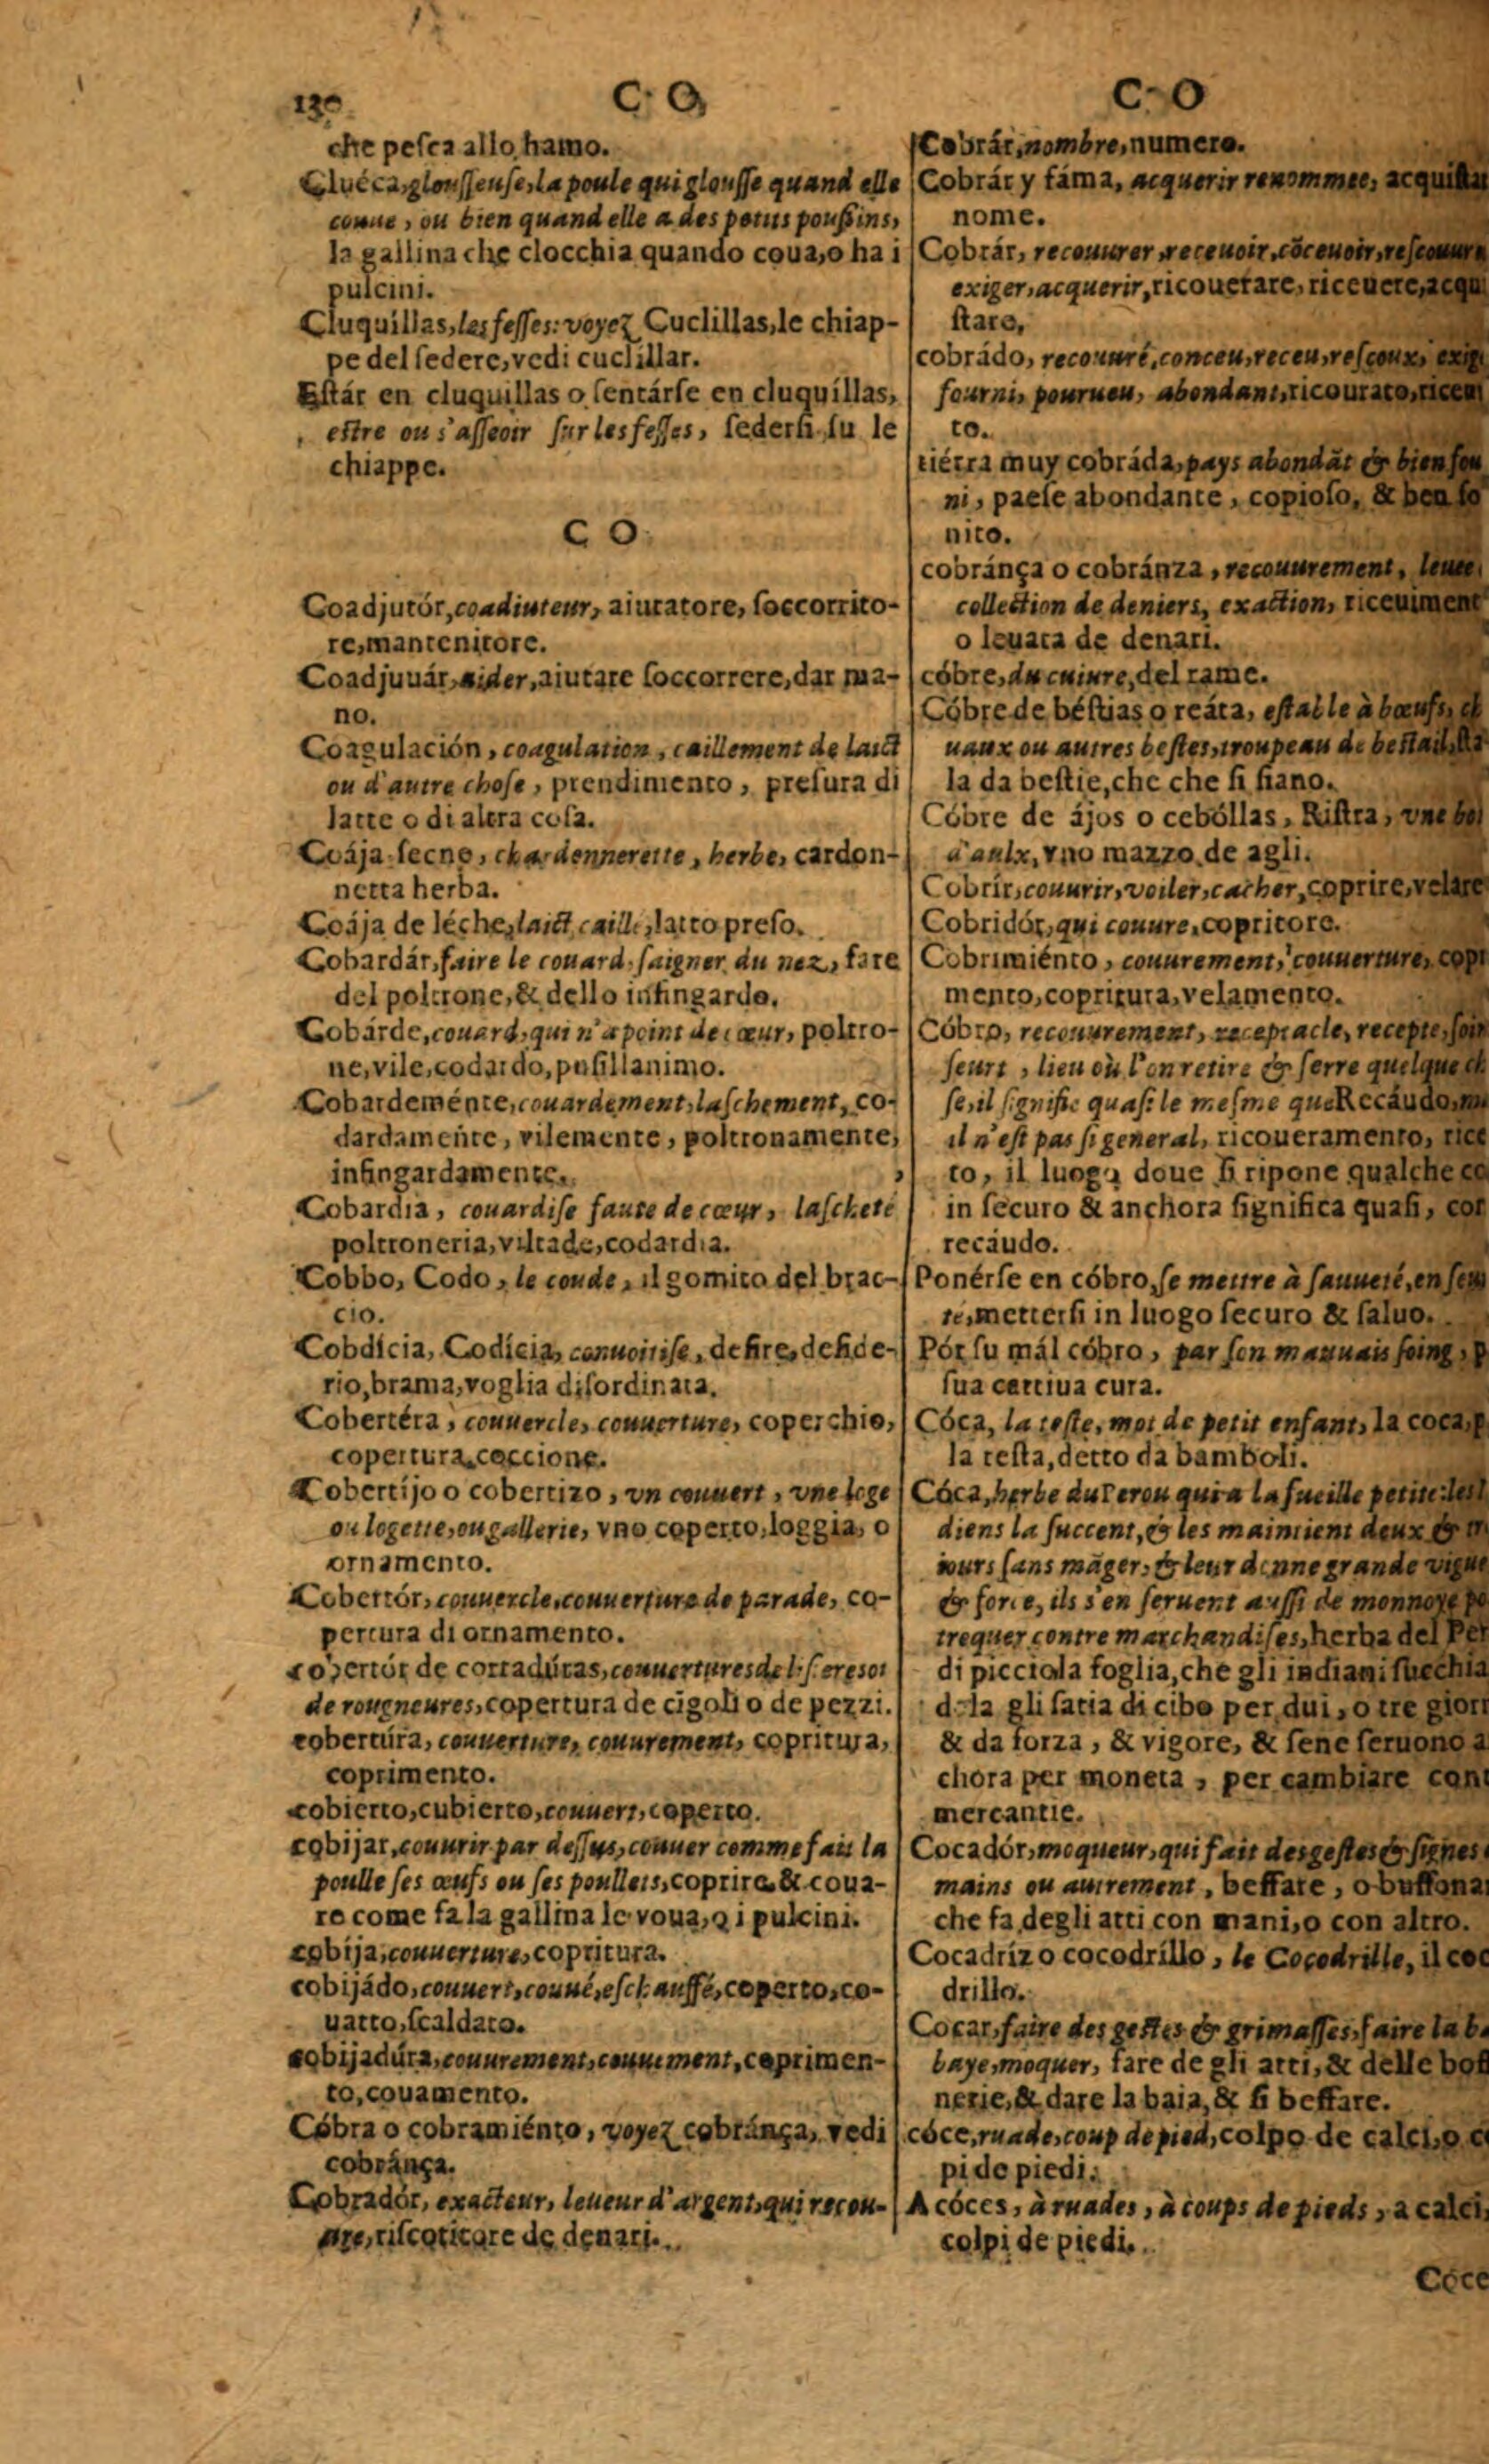 130 C O C O
che peſca allo hamo.
Cluéca, glouſſeuſe, la poule qui glouſſe quand elle
couue, ou bien quand elle a des petits pouſsins,
la gallina che clocchia quando coua, o ha i
pulcini.
Cluquíllas, les feſſes: voyez Cuclillas, le chiap-
pe del ſedere, vedi cuclíllar.
Eſtár en cluquillas o ſentárſe en cluquíllas,
eſtre ou s'aſſeoir ſur les feſſes, ſederſi ſu le
chiappe.
C O
Coadjutór, coadiuteur, aiutatore, ſoccorrito-
re, mantenitore.
Coadjuuár, aider, aiutare ſoccorrere, dar ma-
no.
Coagulación, coagulation, caillement de laict
ou d'autre choſe, prendimento, preſura di
latte o di altra coſa.
Coája ſecno, chardennerette, herbe, cardon-
netta herba.
Coája de léche, laict caillé, latto preſo.
Cobardár, faire le couard, ſaigner du nez, fare
del poltrone, & dello infingardo.
Cobárde, couard, qui n'a point de cœur, poltro-
ne, vile, codardo, puſillanimo.
Cobardeménte, couardement, laſchement, co-
dardamente, vilemente, poltronamente,
infingardamente.
Cobardia, couardiſe faute de cœur, laſcheté
poltroneria, viltade, codardia.
Cobbo, Codo, le coude, il gomito del brac-
cio.
Cobdícia, Codícia, conuoitiſe, deſire, deſide-
rio, brama, voglia diſordinata.
Cobertéra, couuercle, couuerture, coperchio,
copertura, coccione.
Cobertíjo o cobertizo, vn couuert, vne loge
ou logette, ou gallerie, vno coperto, loggia, o
ornamento.
Cobertór, couuercle, couuerture de parade, co-
pertura di ornamento.
cobertór de cortadúras, couuertures de
de rougneures, copertura de cigoli o de pezzi.
cobertúra, couuerture, couurement, copritura,
coprimento.
cobierto, cubierto, couuert, coperto.
cobijar, couurir par deſſus, couuer comme fait la
poulle ſes œufs ou ſes poullets, coprire, & coua-
re come fa la gallina le voua, o i pulcini.
cobija, couuerture, copritura.
cobijádo, couuert, couué, eſchauffé, coperto, co-
uatto, ſcaldato.
cobijadúra, couurement, couuement, coprimen-
to, covamento.
Cóbra o cobramiénto, voyez cobránça, vedi
cobránça.
Cobradór, exacteur, leueur d'argent, qui recou-
ure, riſcotitore de denari.
Cobrár, nombre, numero.
Cobrár y fáma, acquerir renommee, acquiſtar
nome.
Cobrár, recouurer, receuoir, cõceuoir, reſcouure
exiger, acquerir, ricouerare, riceuere, acqui
ſtare,
cobrádo, recouuré, conceu, receu, reſcoux, exigé
fourni, pourueu, abondant, ricourato, riceui
to.
tiérra muy cobráda, pays abondãt & bien fou
ni, paeſe abondante, copioſo, & ben fo
nito.
cobránça o cobránza, recouurement, leuee,
collection de deniers, exaction, riceuiment
o leuata de denari.
cóbre, du cuiure, del rame.
Cóbre de béſtias o reáta, eſtable à bœufs, ch
uaux ou autres beſtes, troupeau de beſtail, ſta
la da beſtie, che che ſi ſiano.
Cóbre de ájos o cebóllas, Riſtra, vne bot
d'aulx, vno mazzo de agli.
Cobrír, couurir, voiler, cacher, coprire, velare
Cobridór, qui couure, copritore.
Cobrimiénto, couurement, couuerture, copr
mento, copritura, velamento.
Cóbro, recouurement, receptacle, recepte, ſoin
ſeurt, lieu où l'on retire & ſerre quelque ch
ſe, il ſignifie quaſi le meſme que Recáudo, m
il n'eſt pas ſi general, ricoueramento, rice
to, il luogo doue ſi ripone qualche co
in ſecuro & anchora ſignifica quaſi, cor
recáudo.
Ponérſe en cóbro, ſe mettre à ſauueté, en ſeu
té, metterſi in luogo ſecuro & ſaluo.
Pór ſu mál cóbro, par ſon mauuais ſoing, p
ſua cattiua cura.
Cóca, la teſte, mot de petit enfant, la coca, p
la teſta, detto da bamboli.
Cóca, herbe du Perou qui a la fueille petite: les I
diens la ſuccent, & les maintient deux & tr
iours ſans mãger, & leur donne grande vigue
& force, ils s'en ſeruent auſſi de monnoye po
trequer contre marchandiſes, herba del Per
di picciola foglia, che gli indiani ſucchia
della gli ſatia di cibo per dui, o tre giorn
& da forza, & vigore, & ſene ſeruono a
chora per moneta, per cambiare cont
mercantie.
Cocadór, moqueur, qui fait des geſtes & ſignes
mains ou autrement, beffare, o buffona
che fa degli atti con mani, o con altro.
Cocadríz o cocodríllo, le Cocodrille, il coc
drillo.
Cocar, faire des geſtes & grimaſſes, faire la b
baye, moquer, fare de gli atti, & delle boff
nerie, & dare la baia, & ſi beffare.
cóce, ruade, coup de pied, colpo de calci, o c
pi de piedi.
A cóces, à ruades, à coups de pieds, a calci,
colpi de piedi.
Cóce